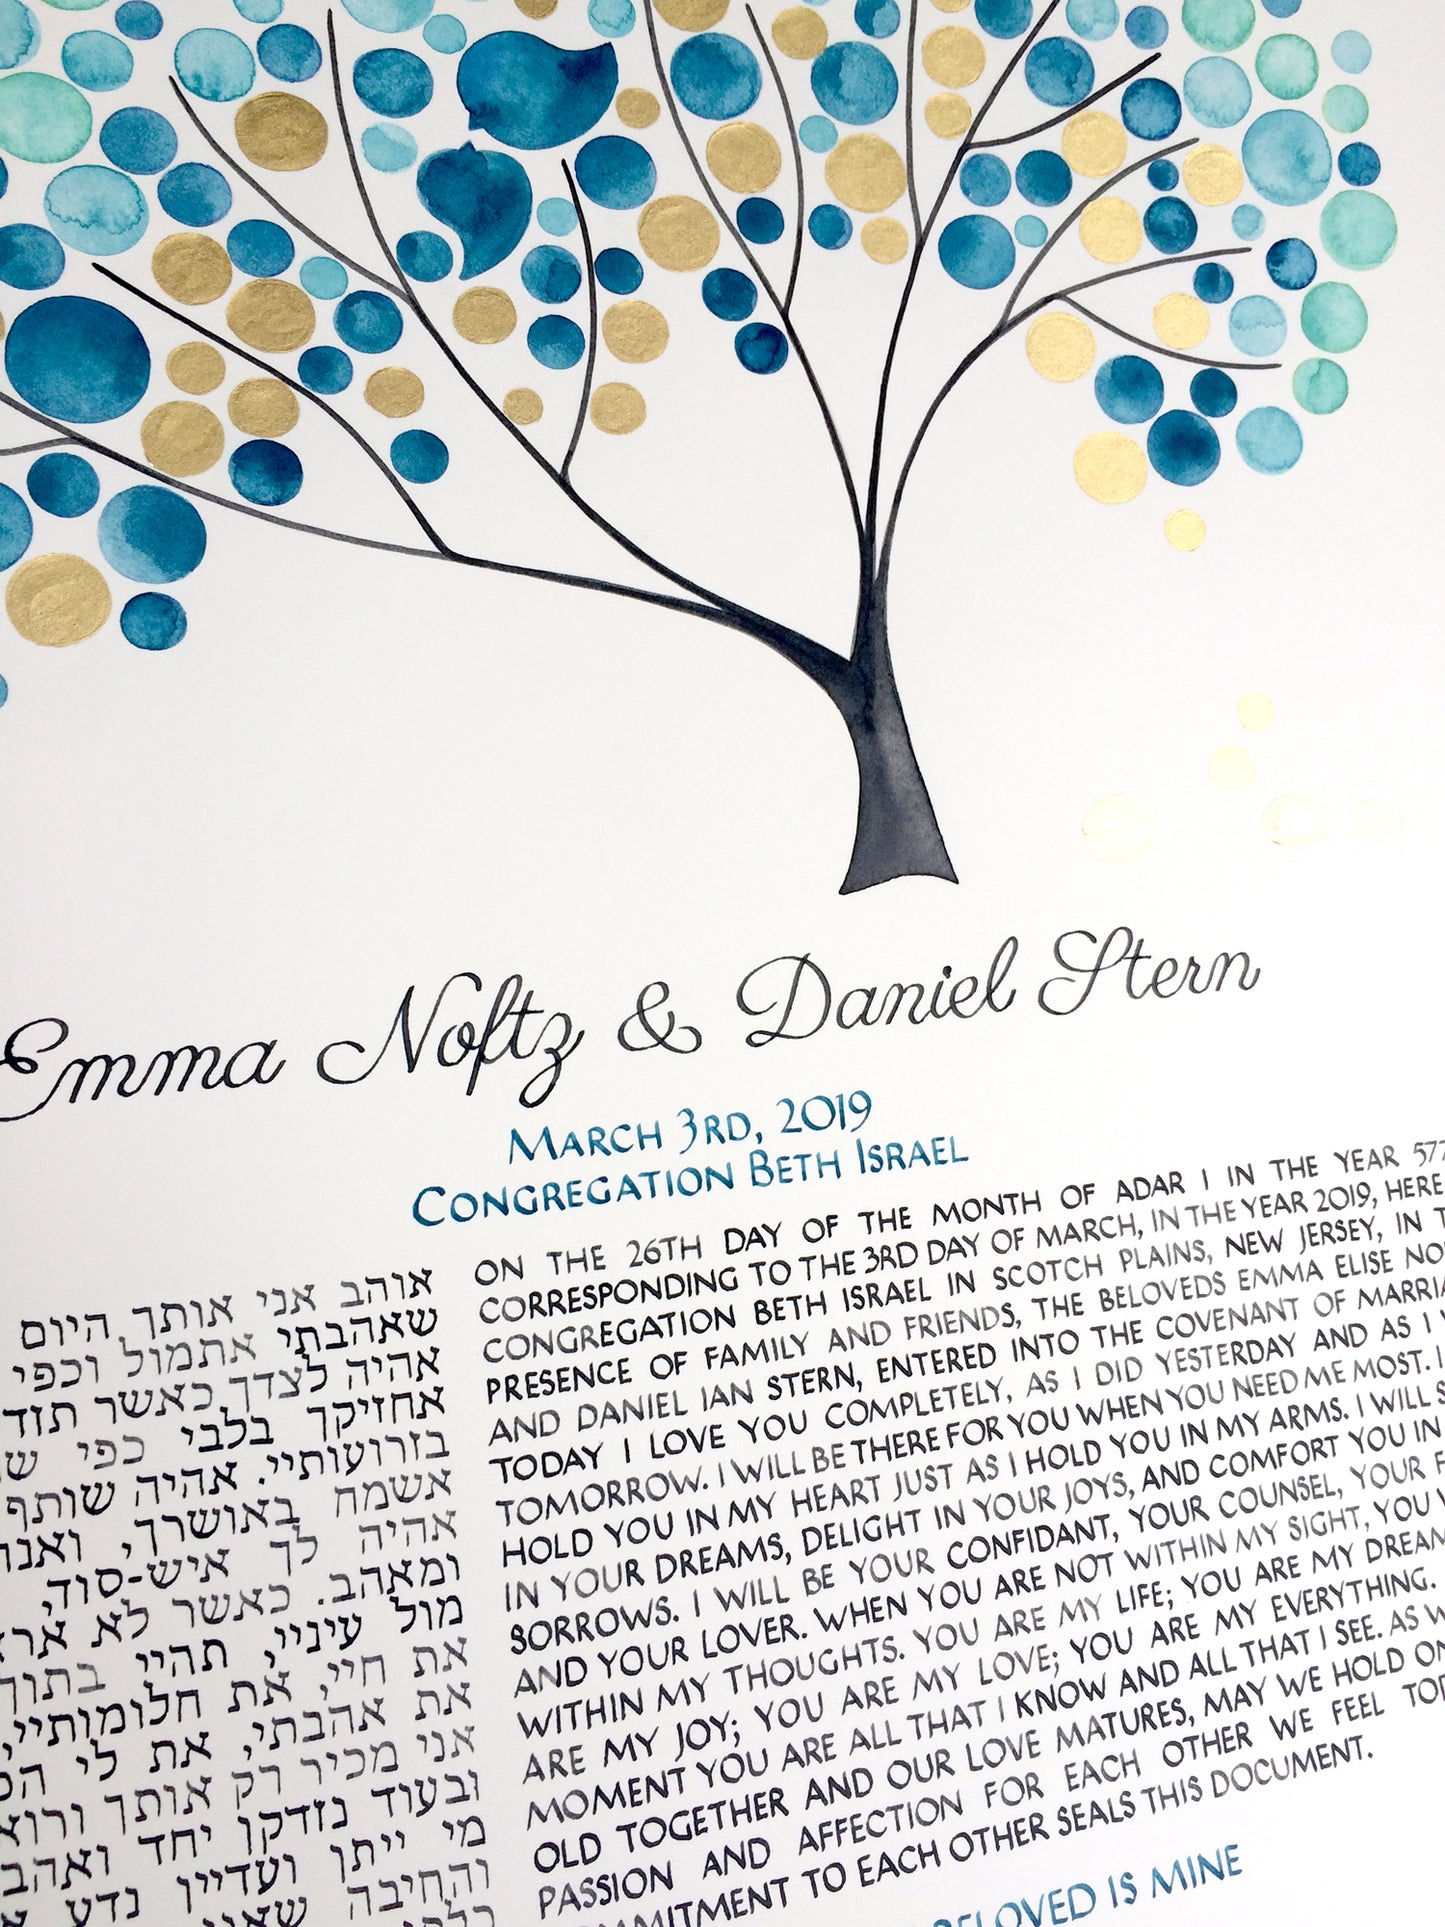 Emma Noftz & Daniel Stern
MARCH 3RD, 2019
CONGREGATION BETH ISRAEL
ON THE 26TH DAY OF THE MONTH OF ADAR I IN THE YEAR
CORRESPONDING TO THE 3RD DAY OF MARCH, IN THE YEAR 2019, HERE
CONGREGATION BETH ISRAEL IN SCOTCH PLAINS, NEW JERSEY, IN
PRESENCE OF FAMILY AND FRIENDS, THE BELOVEDS EMMA ELISE
AND DANIEL IAN STERN, ENTERED INTO THE COVENANT OF
TODAY I LOVE YOU COMPLETELY, AS I DID YESTERDAY AND AS I
TOMORROW. I WILL BE THERE FOR YOU WHEN YOU NEED ME MOST. I
HOLD YOU IN MY HEART JUST AS I HOLD YOU IN MY ARMS. I WILL
IN YOUR DREAMS, DELIGHT IN YOUR JOYS, AND COMFORT YOU IN
SORROWS. I WILL BE YOUR CONFIDANT, YOUR COUNSEL, YOUR
AND YOUR LOVER. WHEN YOU ARE NOT WITHIN MY SIGHT, YOU
WITHIN MY THOUGHTS. YOU ARE MY LIFE; YOU ARE MY
ARE MY JOY; YOU ARE MY LOVE; YOU ARE MY EVERYTHING.
MOMENT YOU ARE ALL THAT I KNOW AND ALL THAT I SEE. AS
OLD TOGETHER AND OUR LOVE MATURES, MAY WE HOLD
PASSION AND AFFECTION FOR EACH OTHER WE FEEL
TO EACH OTHER SEALS THIS DOCUMENT.
IS MINE
אוהב אני אותך היום
שאהבתי אתמול וכפי
אהיה לצדך כאשר
אחזיקך בלבי כפי
בזרועותיי. אהיה שותף
אשמח באושרך,
אהיה לך איש-סוד,
ומאהב. כאשר לא
מול עיניי, תהיי
את חיי, את חלומותיי,
את אהבתי, את לי
אני מכיר רק אותך
ובעוד נזדקן יחד
מי ייתן ועדיין נדע
והחיבה